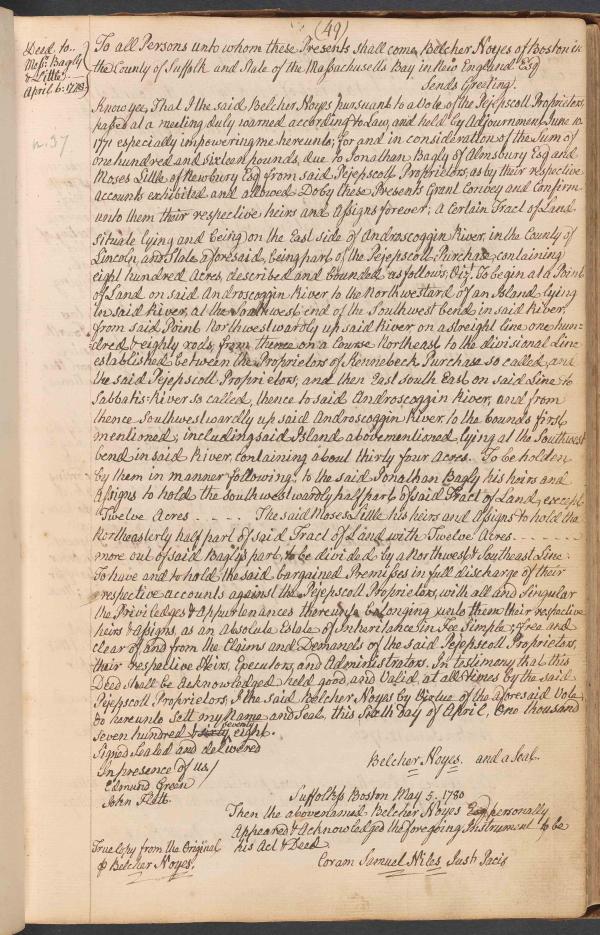 (49)
Deed to..
Messrs. Bagly
& Little
April 6: 1778
n. 37
To all Persons unto whom these Presents shall come Belcher Noyes of Boston in
the County of Suffolk and State of the Massachusetts Bay in New England Esq
Sends Greeting.
Know yee, That I the said Belcher Noyes pursuant to a Vote of the Pejepscott Proprietors,
passed at a meeting duly warned according to Law, and held by Adjournment June 10
1771 especially impowering me hereunto; for and in consideration of the Sum of
one hundred and sixteen pounds, due to Jonathan Bagly of Almsbury Esq and
Moses Little of Newbury Esq from said Pejepscott Proprietors, as by their respective
accounts exhibited and allowed Do by these Presents Grant Convey and Confirm
unto them their respective heirs and Assigns forever; a Certain Tract of Land
situate lying and being on the East side of Androscoggin River, in the County of
Lincoln, and State aforesaid, being part of the Pejepscott Purchase, containing
eight hundred Acres, described and bounded as follows, Viz. To begin at a Point
of Land on said Androscoggin River to the Northwestard of an Island lying
in said River, at the Southwest end of the Southwest bend in said River,
from said Point Northwestwardly up said River on a streight line one hun-
dred & eighty rods, from thence on a Course Northeast to the divisional Line
established between the Proprietors of Kennebeck Purchase so called, and
the said Pejepscott Proprietors, and then East South East on said Line to
Sabbatis-River so called, thence to said Androscoggin River, and from
thence Southwestwardly up said Androscoggin River, to the bounds first
mentioned; including said Island abovementioned, lying at the Southwest
bend in said River, containing about thirty four Acres. To be holden
by them in manner following: to the said Jonathan Bagly his heirs and
Assigns to hold the Southwestwardly half part of said Tract of Land, except
Twelve Acres - - - - The said Moses Little his heirs and Assigns to hold the
Northeasterly half part of said Tract of Land with Twelve Acres - - - - - -
more out of said Bagly's part, to be divided by a Northwest & Southeast Line.
To have and to hold the said bargained Premisses in full discharge of their
respective accounts against the Pejepscott Proprietors, with all and Singular
the Priviledges & Appurtenances thereunto belonging unto them their respective
heirs & Assigns, as an Absolute Estate of Inheritance in Fee Simple, free and
clear of and from the Claims and Demands of the said Pejepscott Proprietors,
their respective Heirs, Executors, and Administrators. In testimony that this
Deed shall be Acknowledged held good, and Valid, at all Times by the said
Pejepscott Proprietors, I the said Belcher Noyes by Virtue of the aforesaid Vote
do hereunto sett my Name and Seal, this Sixth Day of April, One thousand
seven hundred & sixty seventy eight.
Signed Sealed and delivered
In presence of us/
Belcher Noyes. and a Seal.
Edmund Green
John Flatt.
Suffolk ss Boston May 5. 1780
Then the abovenamed Belcher Noyes Esq personally
Appeared & Acknowledged the foregoing Instrument to be
his Act & Deed
True Copy from the Original
p Belcher Noyes.
Coram Samuel Niles Just. Pacis